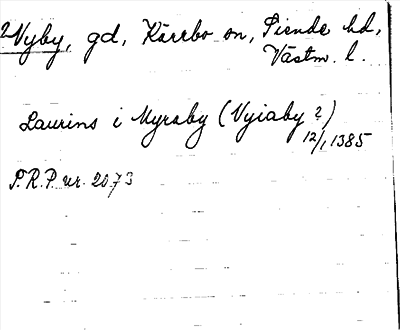 2 Nyby, gd, Kärrbo sn, Siende hd,
Västm. l.
Laurins i Myraby (Vyiaby?)
12/1 1385
P.R.P. nr. 2073